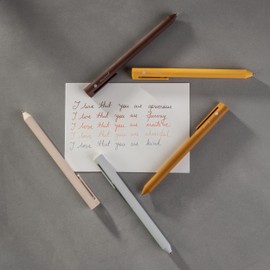 I love that you are generous
I love that you are funny
I love that you are creative
I love that you are cheerful
I love that you are kind